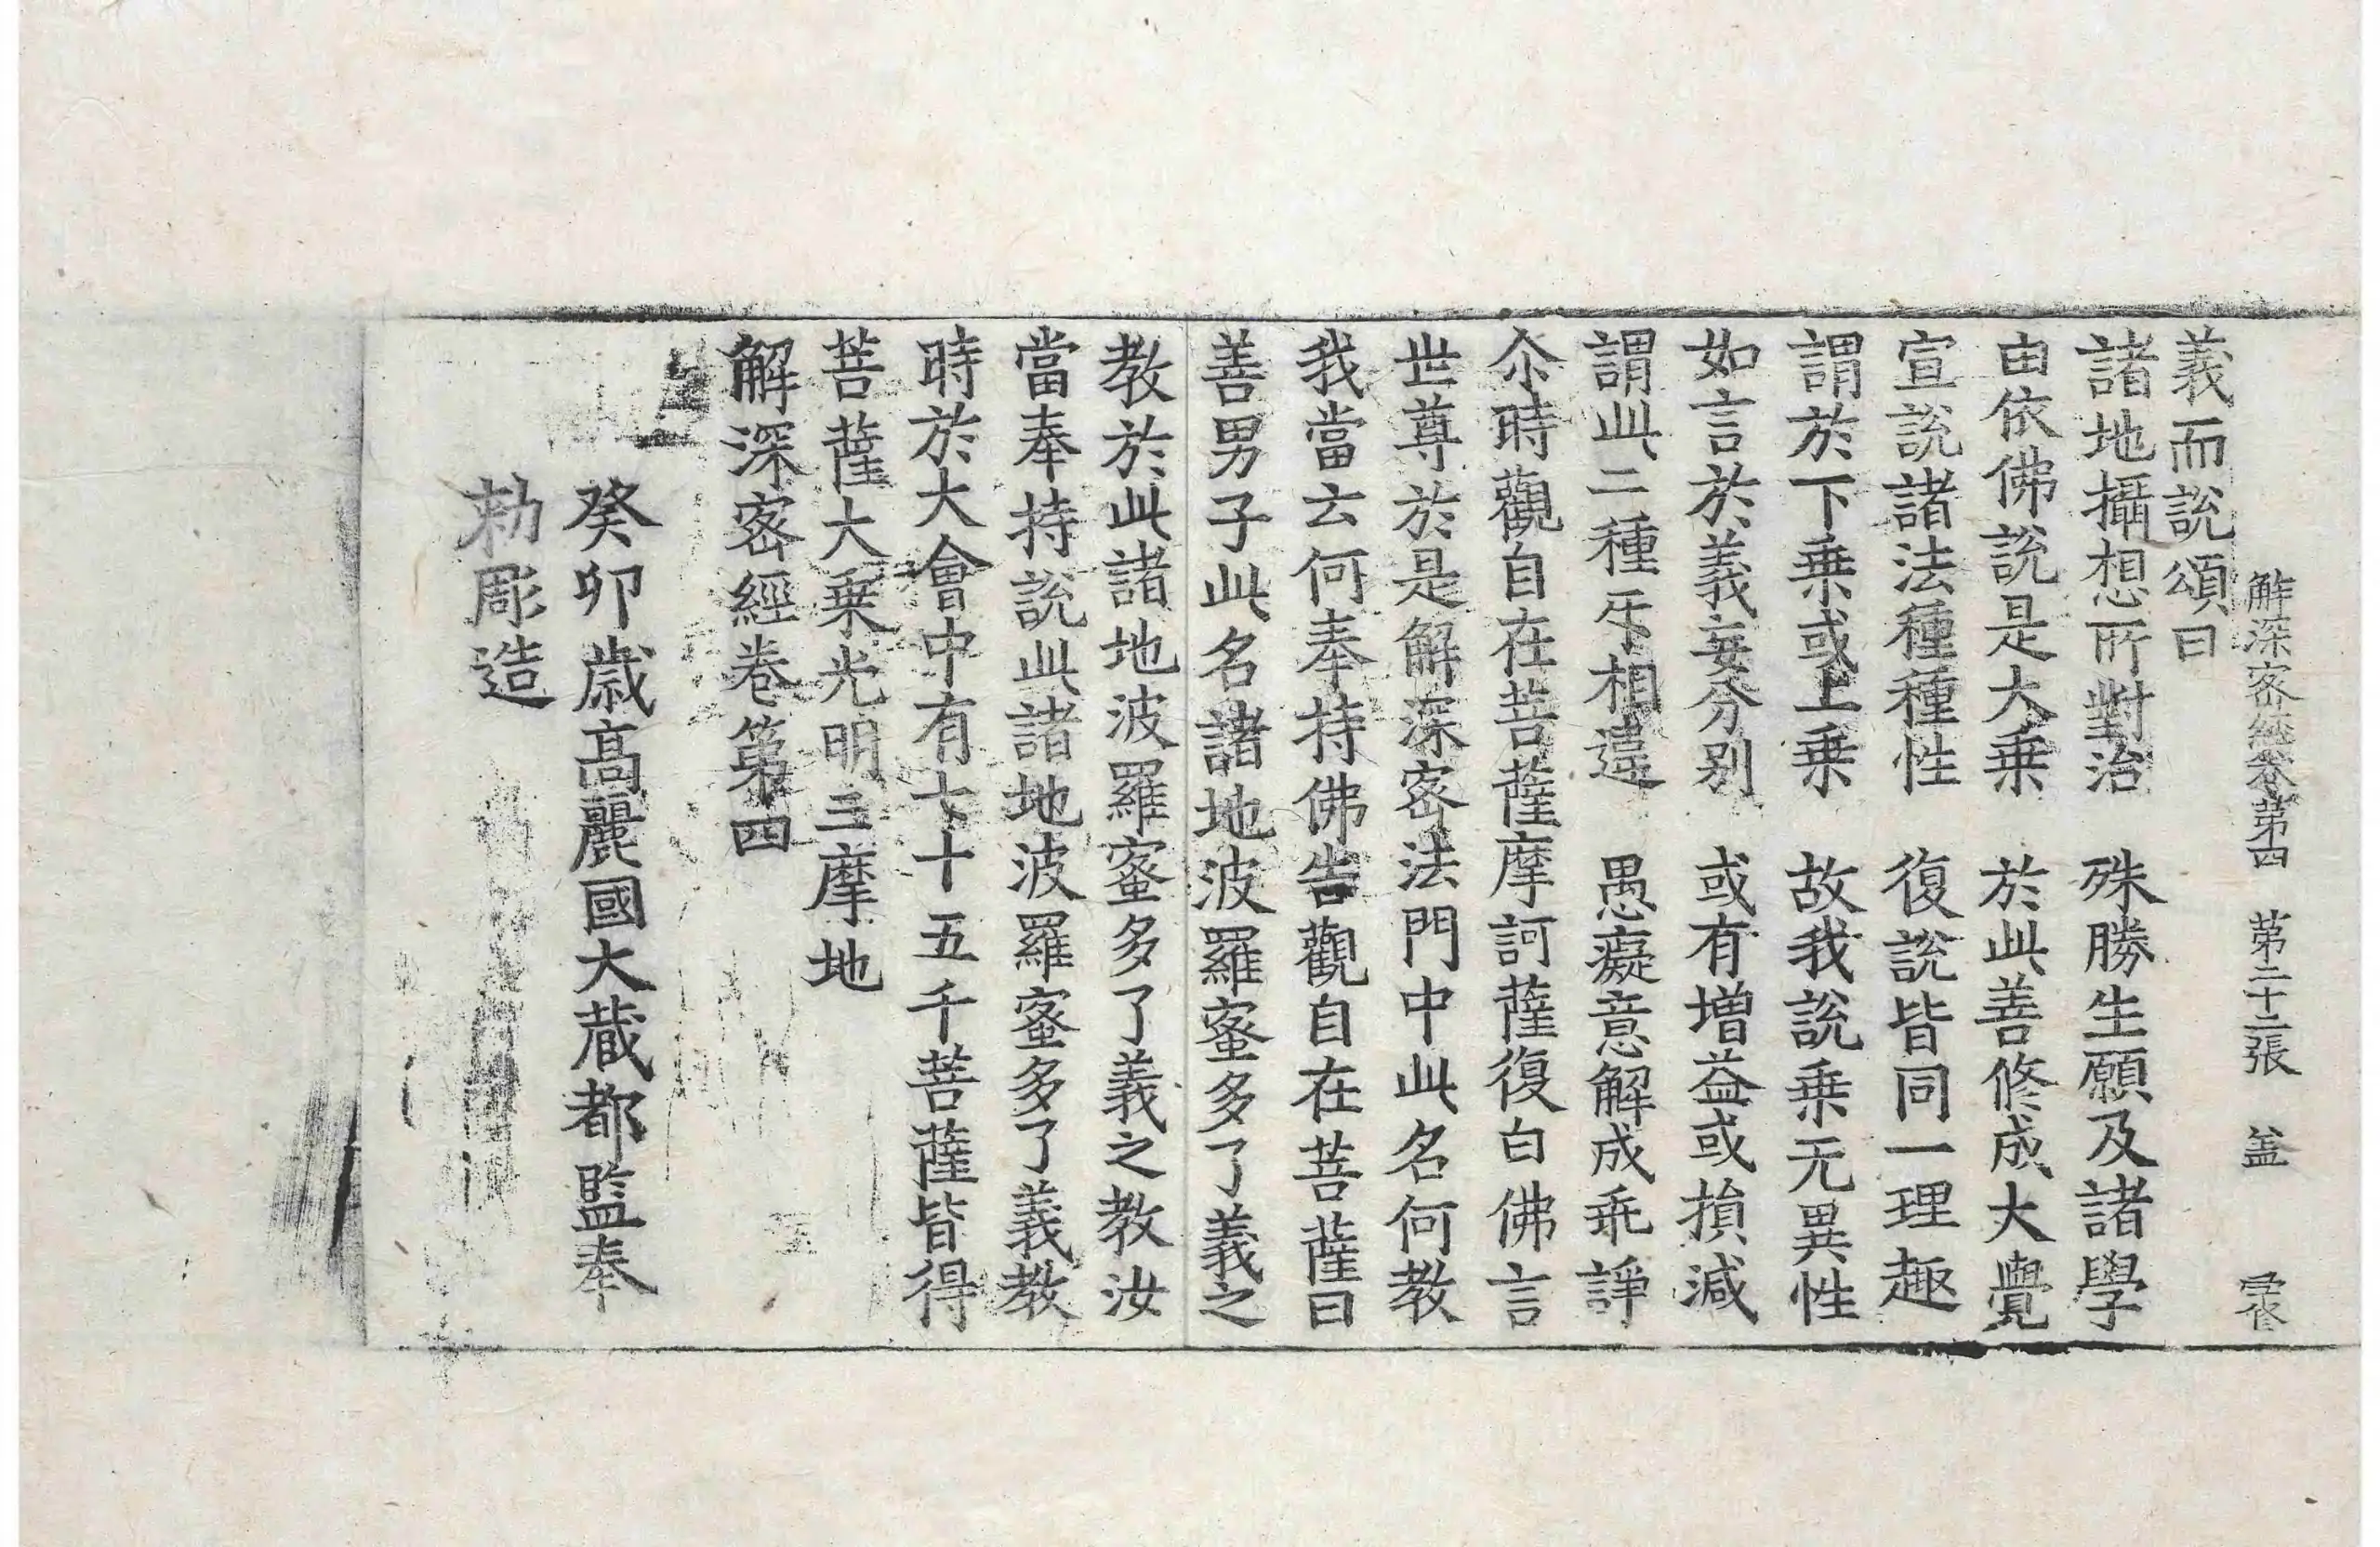 解深密經卷第四　第二十二張　盖
義而說頌曰
諸地攝想所對治　殊勝生願及諸學
由依佛說是大乗　於此善修成大覺
宣說諸法種種性　復說皆同一理趣
謂於下乗或上乗　故我說乗无異性
如言於義妄分别　或有增益或損減
謂此二種乎相違　愚癡意解成乖諍
尒時觀自在菩薩摩訶薩復白佛言
世尊於是解深密法門中此名何教
我當云何奉持佛告觀自在菩薩曰
善男子此名諸地波羅蜜多了義之
教於此諸地波羅蜜多了義之教汝
當奉持說此諸地波羅蜜多了義教
時於大會中有七十五千菩薩皆得
菩薩大乗光明三摩地
解深密經卷第四
癸卯歲高麗國大蔵都監奉
勅彫造